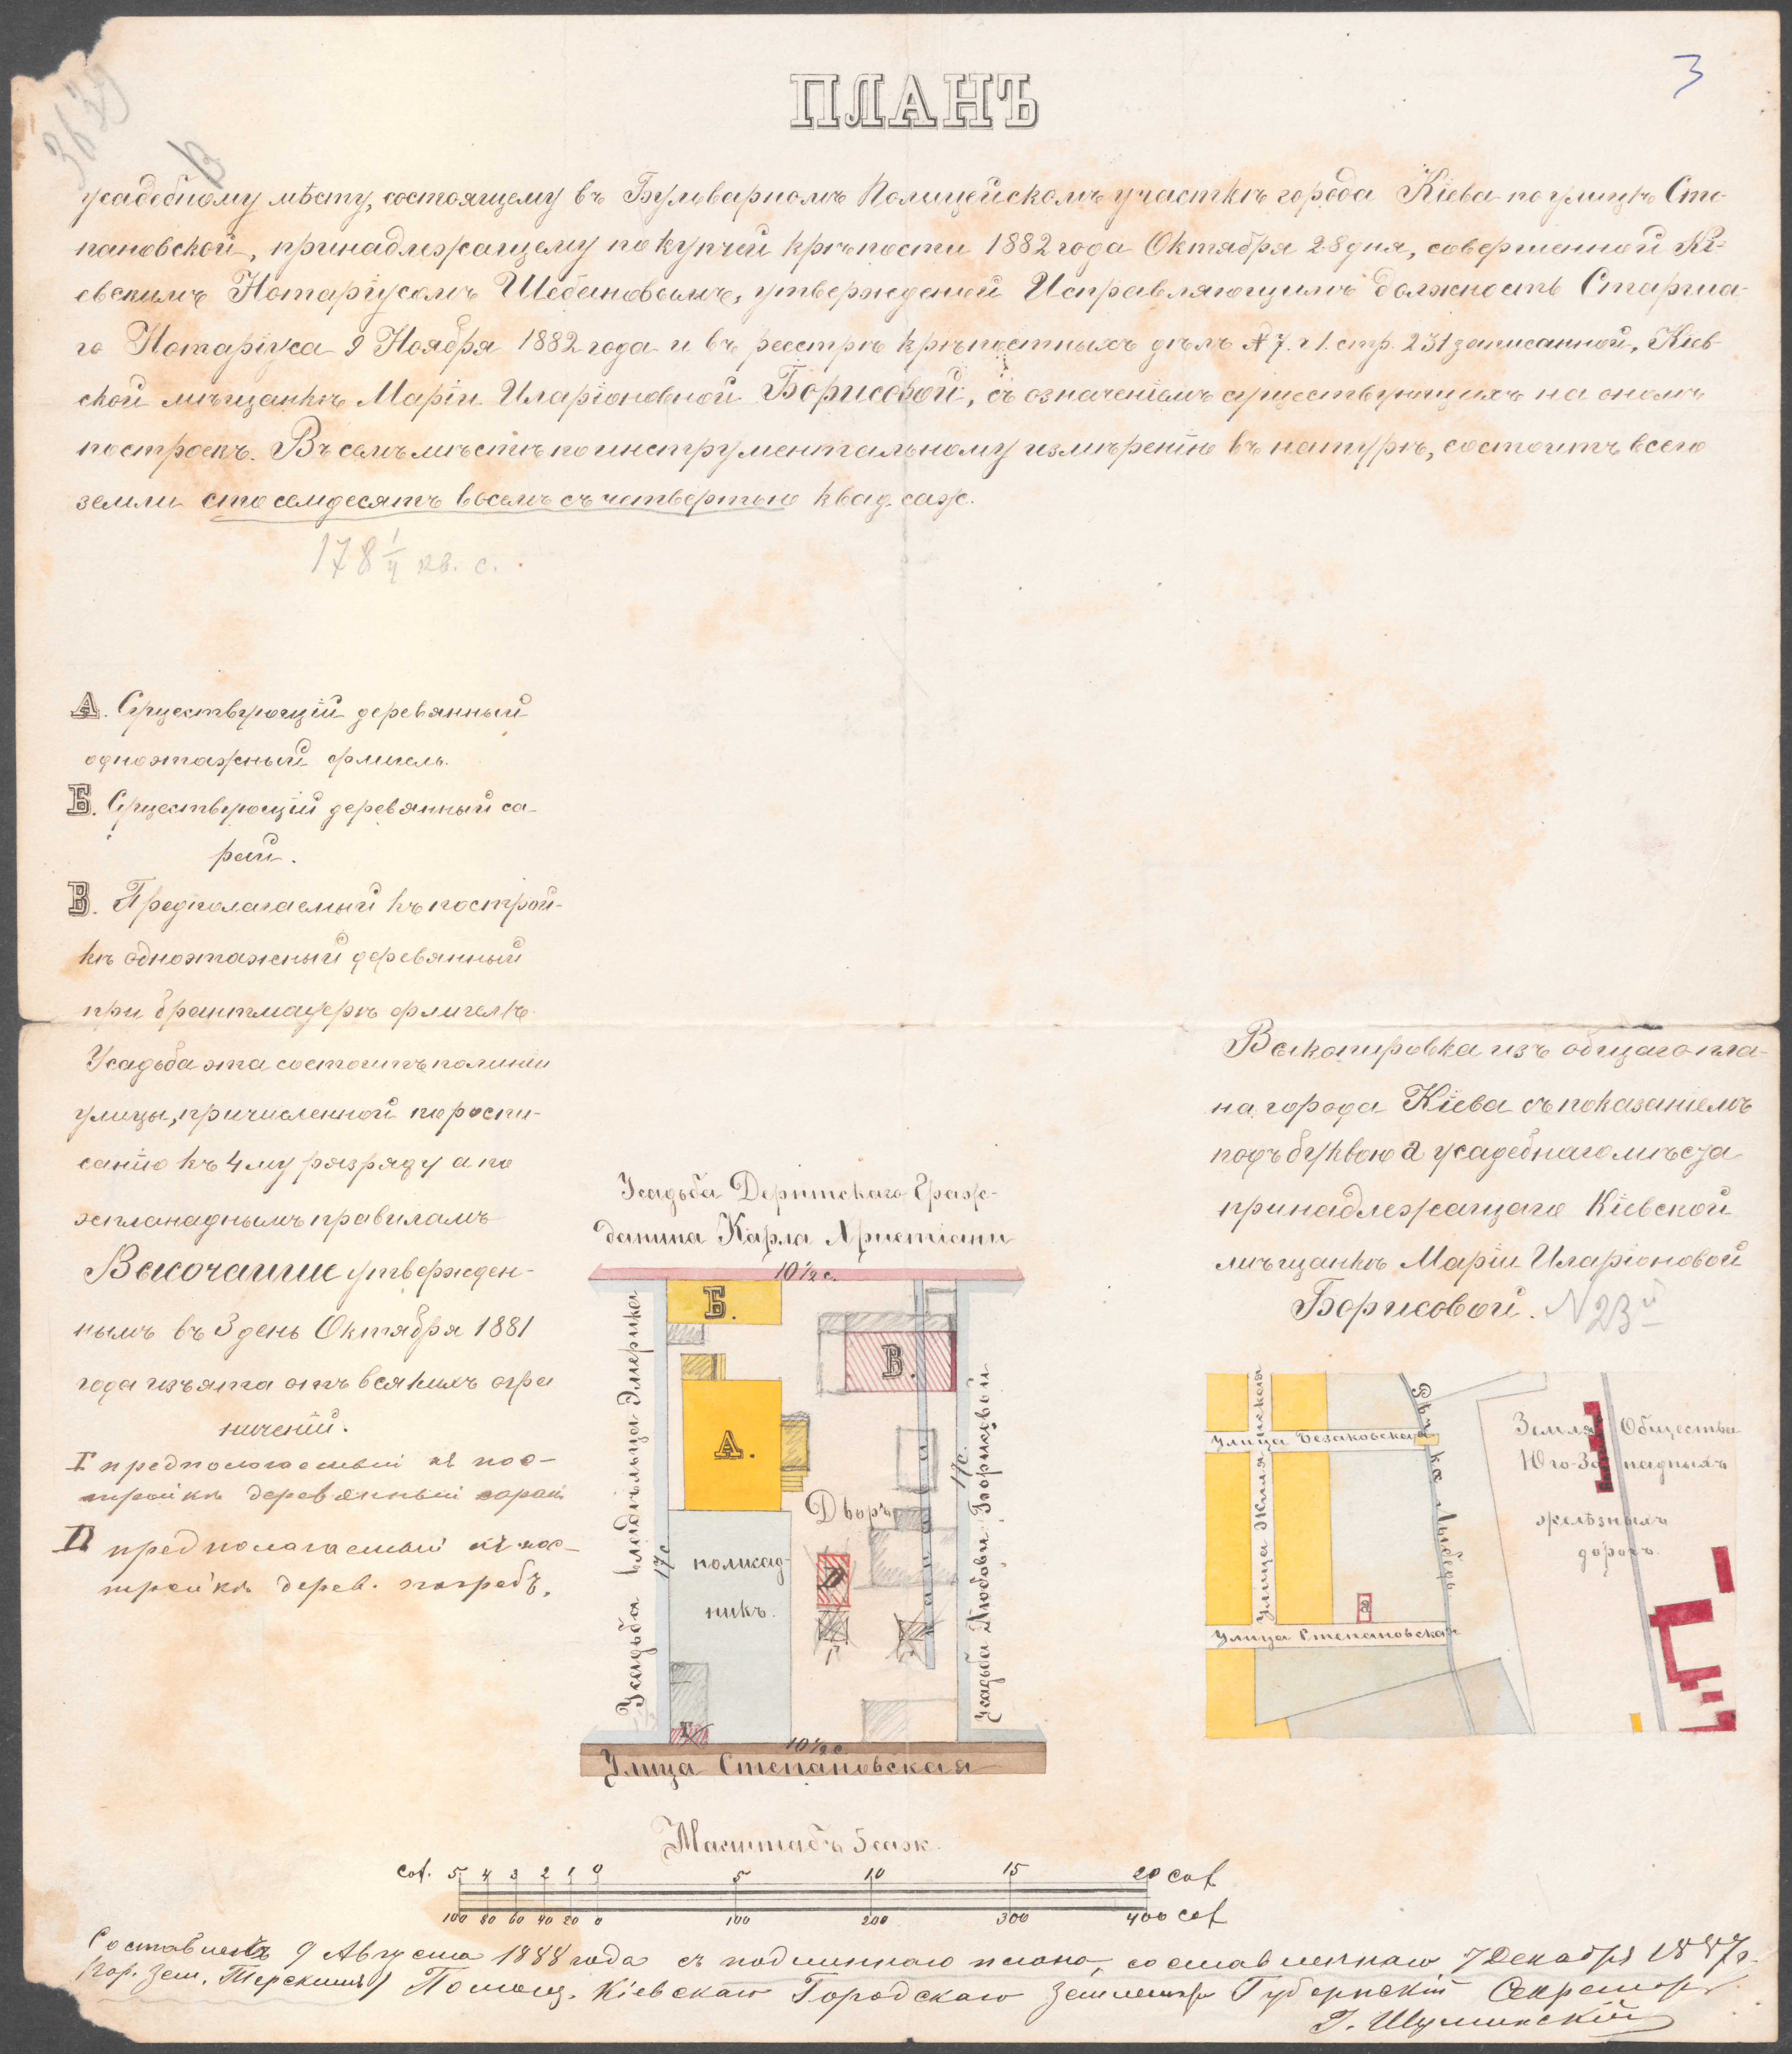 3
3639
В
ПЛАНЪ
усадебному мѣсту, состоящему въ Бульварномъ Полицейскомъ участкѣ города Кіева по улицѣ Сте-
пановской, принадлежащему по купчей крѣпости 1882 года Октября 28 дня, совершенной Кі-
евскимъ Нотаріусомъ Шебановымъ, утвержденой Исправляющимъ должность Старша-
го Нотаріуса 9 Ноября 1882 года и въ реестрѣ крѣпостныхъ дѣлъ № 7. ч 1. стр. 231 записанной, Кіев-
ской мѣщанкѣ Маріи Иларіоновной Борисовой, съ означеніемъ существующихъ на ономъ
построекъ. Въ семъ мѣстѣ по инструментальному измѣренію въ натурѣ, состоитъ всего
земли сто семдесятъ восемъ съ четвертью квад. саж.
178 1/4 кв. с.
А. Существующій деревянный
одноэтажный флигель.
Б. Существующій деревянный са-
рай.
В. Предполагаемый къ построй-
кѣ одноэтажный деревянный
при брантмауерѣ флигель.
Усадьба эта состоитъ по линіи
улицы, причисленной по роспи-
санію къ 4му разряду а по
эспланаднымъ правиламъ
Высочайше утвержден-
нымъ въ 3 день Октября 1881
года изъята отъ всякихъ огра
ниченій.
Г предполагаемый къ пос-
тройкѣ деревянный сарай
Д предполагаемый къ пос-
тройкѣ дерев. погребъ.
Выкопировка изъ общаго пла-
на города Кіева съ показаніемъ
подъ буквою а усадебнаго мѣста
принадлежащаго Кіевской
мѣщанкѣ Маріи Иларіоновой
Борисовой. N 23й
Усадьба Дерптскаго Граж-
данина Карла Христіани
10 1/2 с.
Б.
В.
А.
Усадьба владѣльца Эмерика
17 с
Дворъ
17 с.
Усадьба Любови Борисовой
полисад-
никъ.
Д
Г
Г
Г
10 1/2 с.
Улица Степановская
Улица Жилянская
Улица Безаковская
Рѣчка Лыбедь
Земля Общества
Юго-Западныхъ
желѣзныхъ
дорогъ.
а
Улица Степановская
Масштабъ 5 саж.
Саж. 5 4 3 2 1 0 5 10 15 20 саж
100 80 60 40 20 0 100 200 300 400 саж
Составленъ 9 Августа 1888 года съ подлиннаго плана, составленнаго 7 Декабря 1887 г.
Гор. Зем. Терскимъ) Помощ. Кіевскаго Городскаго Землемѣра Губернскій Секретарь
Г. Шуминскій